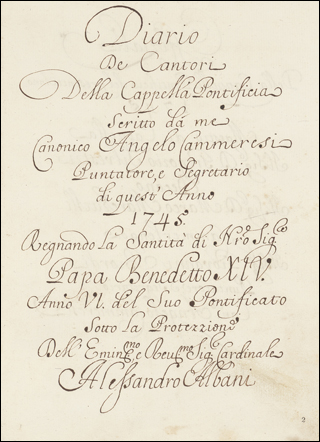 Diario
De Cantori
Della Cappella Pontificia
Scritto da me
Canonico Angelo Cammeresi
Puntatore, e Segretario
di quest' Anno
1745.
Regnando la Santità di Nro Sigre
Papa Benedetto XIV.
Anno VI. del Suo Pontificato
Sotto la Protezzione
Dell' Eminmo e Revmo Sigr Cardinale
Alessandro Albani
2